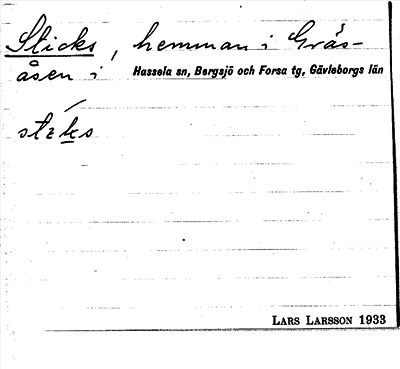 Slicks, hemman i Gräs-
åsen i Hassela sn, Bergsjö och Forsa tg, Gävleborgs län
LARS LARSSON 1933